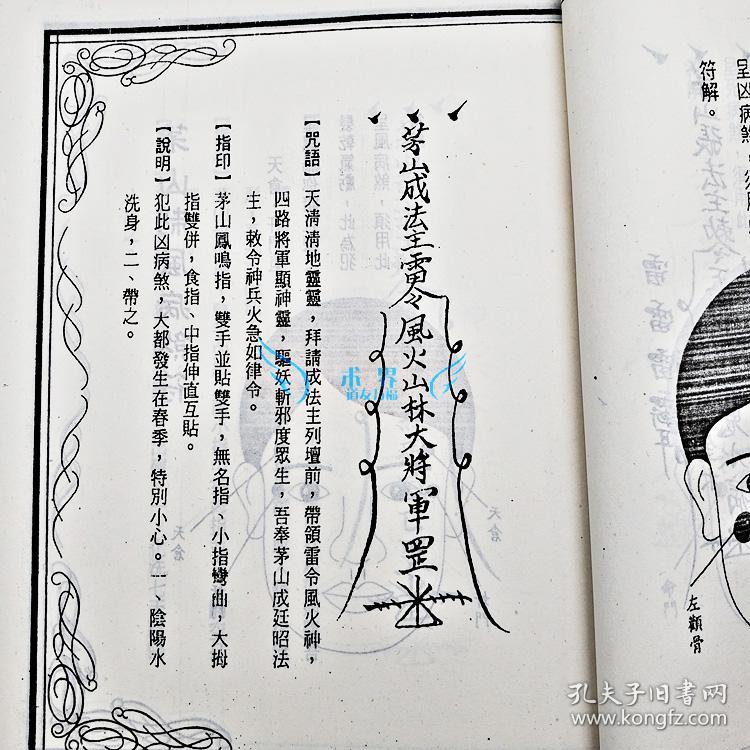 呈凶病煞，
符解。
左顴骨
茅山成法主雷令風火山林大將軍罡
【咒語】天清清地靈靈，拜請成法主列壇前，帶領雷令風火神，
四路將軍顯神靈，驅妖斬邪度眾生，吾奉茅山成廷昭法
主，敕令神兵火急如律令。
【指印】茅山鳳鳴指，雙手並貼雙手，無名指、小指彎曲，大拇
指雙併，食指、中指伸直互貼。
【說明】犯此凶病煞，大都發生在春季，特別小心。一、陰陽水
洗身，二、帶之。
天倉
天倉
命門
术界
道友結福
孔夫子旧书网
www.kongfz.com